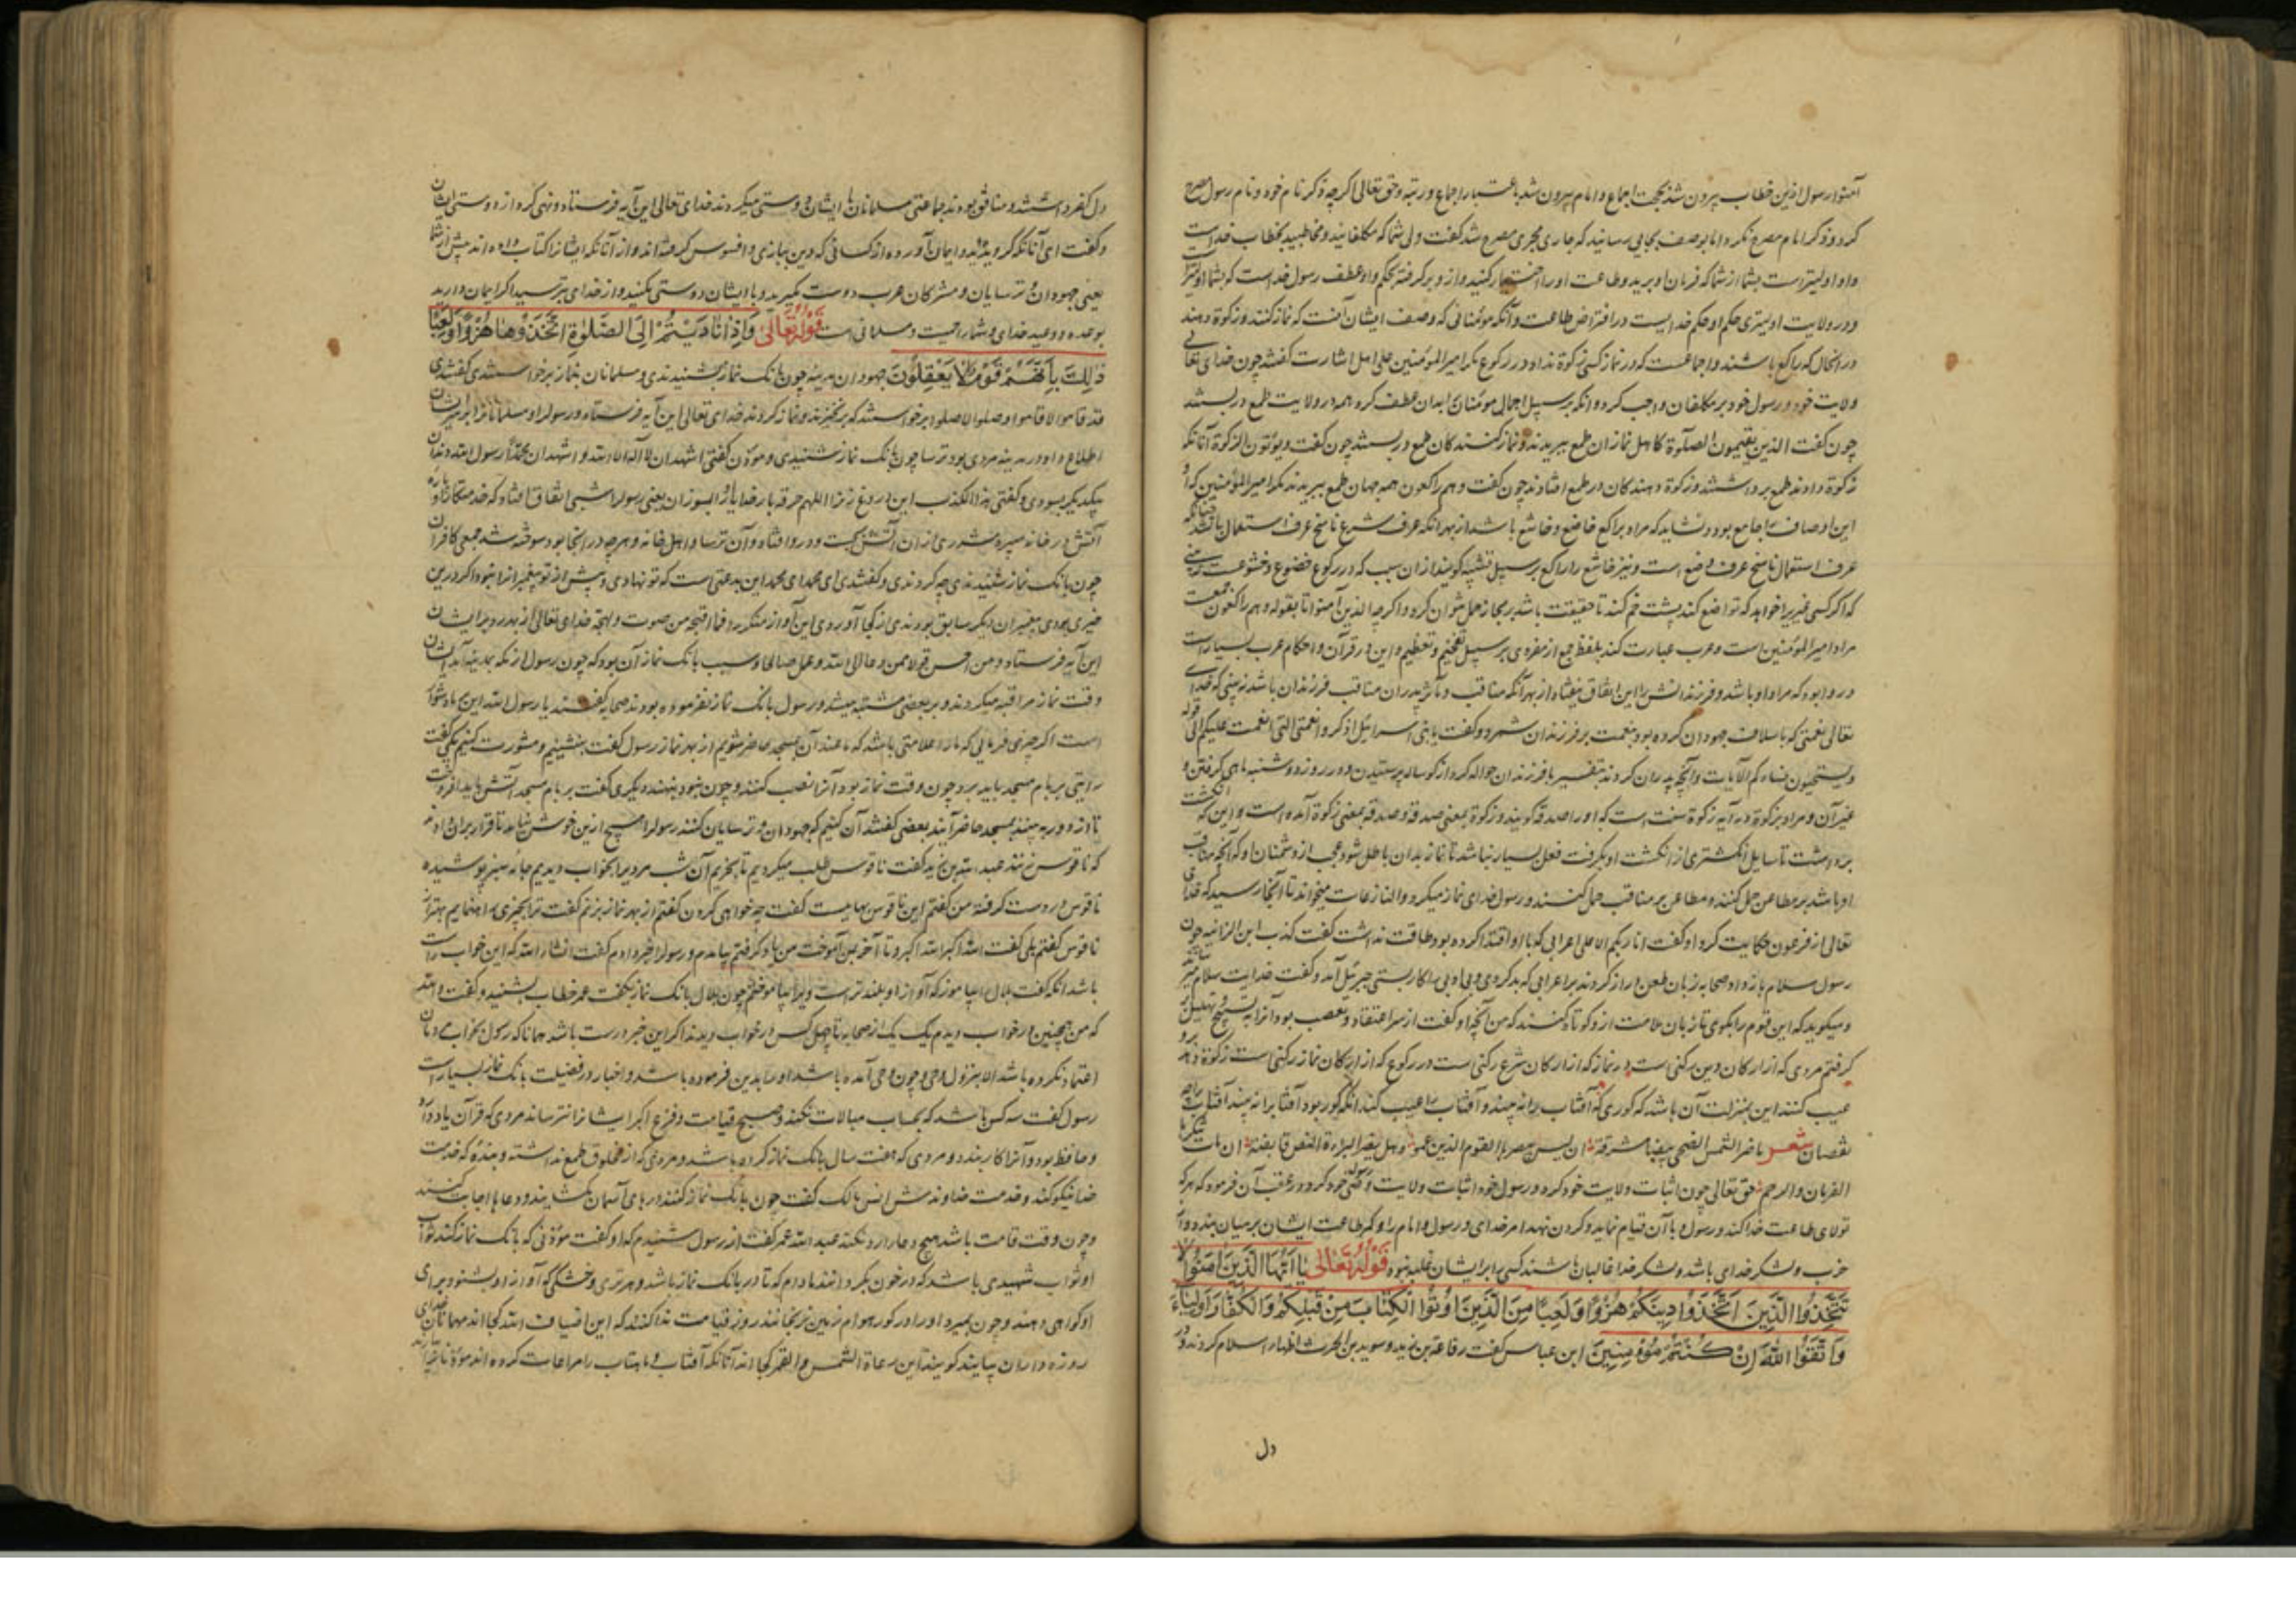 آمنوا رسول ازین خطاب بیرون شد بحجت اجماع و امام بیرون شد باعتبار اجماع و رتبه و حق تعالی اگرچه ذکر نام خود و نام رسول مصرح
کرد و ذکر امام مصرح نکرد اما بوصف بجایی رسانید که جاری مجری مصرح شد گفت ولی شما که مکلفانید و مخاطبید بخطاب خداست
و او اولیترست بشما از شما که فرمان او برید و طاعت او را اختیار کنید و از و برگرفته بحکم واو عطف رسول خداست که بشما اولیتر
و در ولایت اولیتری حکم او حکم خداییست در افتراض طاعت و آنگه مؤمنانی که وصف ایشان آنست که نماز کنند و زکوة دهند
در آنحال که راکع باشند و اجماعست که در نماز کسی زکوة نداد در رکوع مگر امیرالمؤمنین علی اهل اشارت گفتند چون خدای تعالی
ولایت خود و رسول خود بر مکلفان واجب کرد و آنگه بر سبیل اجمال مؤمنان را بدان عطف کرد همه در ولایت طمع دربستند
چون گفت الذین یقیمون الصلوة کاهل نمازان طمع ببریدند و نماز کنندگان طمع دربستند چون گفت و یؤتون الزکوة آنانکه
زکوة دادند طمع برداشتند و زکوة دهندگان در طمع افتادند چون گفت و هم راکعون همه جهان طمع ببریدند مگر امیرالمؤمنین که او
این اوصاف را جامع بود و نشاید که مراد براکع خاضع و خاشع باشد از بهر آنکه عرف شرع ناسخ عرف استعمال باشد چنانکه
عرف استعمال ناسخ عرف وضع است و نیز خاشع را راکع بر سبیل تشبیه گویند از آن سبب که در رکوع خضوع و خشوعست
که اگر کسی غیری را خواهد که تواضع کند پشت خم کند تا حقیقت باشد بر مجاز حمل نتوان کرد و اگرچه الذین آمنوا تا بقوله و هم راکعون جمعست
مراد امیرالمؤمنین است و عرب عبارت کند بلفظ جمع از مفردی بر سبیل تفخیم و تعظیم و این در قرآن و احکام عرب بسیارست
و روا بود که مراد او باشد و فرزندانش را این اتفاق نیفتاد از بهر آنکه مناقب و مآثر پدران مناقب فرزندان باشد نه بینی که خدای
تعالی نعمتی که با سلاف جهودان کرده بود بنعمت بر فرزندان شمرد و گفت یا بنی اسرائیل اذکروا نعمتی التی انعمت علیکم الی قوله
و یستحیون نساءکم الآیات و آنچه پدران کردند بتفسیر با فرزندان حواله کرد از گوساله پرستیدن و در روز دوشنبه ماهی گرفتن و
غیر آن و مراد بزکوة درین آیه زکوة سنت است که او را صدقه گویند و زکوة بمعنی صدقه و صدقه بمعنی زکوة آمده است و این که انگشت
برداشت تا سایل انگشتری از انگشت او بگرفت فعل بسیار نباشد تا نماز بدان باطل شود و عجب از دشمنان او که آنچه مناقب
او باشد بر مطاعن حمل کنند و مطاعن بر مناقب حمل کنند و رسول خدای نماز میکرد و النازعات میخواند تا آنجا رسید که خدای
تعالی از فرعون حکایت کرد او گفت انا ربکم الاعلی اعرابی که با او اقتدا کرده بود طاقت نداشت گفت کذب ابن الزانیه چون
رسول سلام باز داد صحابه زبان طعن دراز کردند بر اعرابی که بد کردی و بی ادبی را کار بستی جبرئیل آمد و گفت خدایت سلام میرساند
و میگوید که این قوم را بگوی تا زبان ملامت ازو کوتاه کنند که من آنچه او گفت از سر اعتقاد و تعصب بود آنرا بتسبیح و تهلیل
گرفتم مردی که از ارکان دین رکنی است در نماز که از ارکان شرع رکنی است در رکوع که از ارکان نماز رکنی است زکوة دهد و
عیب کنند این بمنزلت آن باشد که کوری که آفتاب را نه بیند و آفتاب را عیب کند آنکه کور بود آفتاب را نه بیند آفتاب را چه
نقصان شعر ما ضر الشمس الضحی بیضا مشرقة ان لیس بصرها القوم الذین عموا و هل یضر البراءة النقص قابقة ان بات
القربان والرحم حق تعالی چون اثبات ولایت خود کرد و رسول خود اثبات ولایت وصی خود کرد و در عقب آن فرمود که هر که
تولای طاعت خدا کند و رسول و با آن قیام نماید و گردن نهد امر خدای و رسول و امام را و کمر طاعت ایشان بر میان بندد و از
حزب و لشکر خدای باشد و لشکر خدا غالبان باشند کسی را بر ایشان غلبه نبود قوله تعالی یا ایها الذین امنوا لا
تتخذوا الذین اتخذوا دینکم هزوا و لعبا من الذین اوتوا الکتاب من قبلکم والکفار اولیاء
واتقوا الله ان کنتم مؤمنین ابن عباس گفت رفاعة بن زید و سوید بن الحرث اظهار اسلام کردند و در
دل
دل کفر داشتند و منافق بودند جماعتی مسلمانان با ایشان دوستی میکردند خدای تعالی این آیه فرستاد و نهی کرد از دوستی ایشان
و گفت ای آنانکه گرویده اید و ایمان آورده از کسانی که دین ببازی و افسوس گرفته اند و از آنانکه ایشانرا کتاب داده اند پیش از شما
یعنی جهودان و ترسایان و مشرکان عرب دوست مگیرید و با ایشان دوستی مکنید و از خدای بترسید اگر ایمان دارید
بوعده و وعید خدای و شما را حمیت و مسلمانی است قوله تعالی واذا نادیتم الی الصلوة اتخذوها هزوا ولعبا
ذلک بانهم قوم لا یعقلون جهودان مدینه چون بانک نماز بشنیدندی و مسلمانان بنماز برخواستندی گفتندی
قد قاموا لا قاموا و صلوا لا صلوا برخواستند که برنخیزند و نماز کردند خدای تعالی این آیه فرستاد و رسول را و مسلمانانرا بر سر ایشان
اطلاع داد و در مدینه مردی بود ترسا چون بانک نماز شنیدی و موذن گفتی اشهد ان لا اله الا الله و اشهد ان محمدا رسول الله دندان
بیکدیگر بسودی و گفتی هذا الکذب این دروغ زنرا اللهم حرقه بار خدایا او را بسوزان یعنی رسول را شبی اتفاق افتاد که خدمتکار او پاره
آتش در خانه میبرد شرری از آن آتش بجست و در و افتاد و آن ترسا و اهل خانه و هرچه در آنجا بود سوخته شد جمعی کافران
چون بانک نماز شنیدندی چه کردندی و گفتندی ای محمد ای محمد این بدعتی است که تو نهادی و پیش از تو پیغمبرانرا نبود اگر درین
خیری بودی پیغمبران دیگر سابق بودندی از کجا آوردی این آواز منکر را فما اقبح من صوت و لهجة خدای تعالی از بهر رد بر ایشان
این آیه فرستاد و من احسن قولا ممن دعا الی الله و عمل صالحا و سبب بانک نماز آن بود که چون رسول از مکه بمدینه آمد ایشان
وقت نماز مراقبه میکردند و بر بعضی مشتبه میشد و رسول بانک نماز نفرموده بودند صحابه گفتند یا رسول الله این ما را دشوار
است اگر چیزی فرمایی که ما را علامتی باشد که ما عند آن بمسجد حاضر شویم از بهر نماز رسول گفت بنشینیم و مشورت کنیم یکی گفت
رایتی بر بام مسجد باید برد چون وقت نماز بود آنرا نصب کنند و چون نبود بنهند دیگری گفت بر بام مسجد آتش باید افروخت
تا از دور به بینند بمسجد حاضر آیند بعضی گفتند آن کنیم که جهودان و ترسایان کنند رسول را هیچ ازین خوش نیامد تا قرار بران دادند
که ناقوس زنند عبدالله بن زید گفت ناقوس طلب میکردیم تا بخریم آن شب مردیرا بخواب دیدیم جامه سبز پوشیده
ناقوس در دست گرفته من گفتم این ناقوس بهاییست گفت چه خواهی کردن گفتم از بهر نماز بزنم گفت ترا بچیزی راه نمایم بهتر از
ناقوس گفتم بلی گفت الله اکبر الله اکبر و تا آخر بمن آموخت من یاد گرفتم بیامدم و رسول را خبر دادم گفت انشاء الله که این خواب راست
باشد آنگه گفت بلال را بیاموز که آواز او بلندتر است ویرا بیاموختم چون بلال بانک نماز بگفت عمر خطاب بشنید و گفت والله
که من همچنین در خواب دیدم یک یک از صحابه تا چهل کس در خواب دیدند اگر این خبر درست باشد همانا که رسول بخواب مردمان
اعتماد نکرده باشد الا بنزول وحی و چون وحی آمده باشد او را بدین فرموده باشد و اخبار در فضیلت بانک نماز بسیارست
رسول گفت سه کس باشد که بحساب مبالات نکنند و صبح قیامت و فزع اکبر ایشانرا نترساند مردی که قرآن یاد دارد
و حافظ بود و آنرا کار بندد و مردی که هفت سال بانک نماز کرده باشد و مردی که از مخلوق طمع نداشته و بنده که خدمت
خدا نیکو کند و خدمت خداوندش انس مالک گفت چون بانک نماز کنند درهای آسمان بگشایند و دعاها اجابت کنند
و چون وقت قامت باشد هیچ دعا را رد نکند عبدالله عمر گفت از رسول شنیدم که او گفت مؤذنی که بانک نماز کند ثواب
او ثواب شهیدی باشد که در خون بگردد مادام که تا در بانک نماز باشد و هر تری و خشکی که آواز او بشنود برای
او گواهی دهند و چون بمیرد او را در گور هوام زمین نرنجانند روز قیامت ندا کنند که این اضیاف الله کجا اند مهمانان خدای
روزه داران بیایند گویند این رعاة الشمس والقمر کجا اند آنانکه آفتاب و ماهتاب را مراعات کرده اند مؤذنانرا بیارند